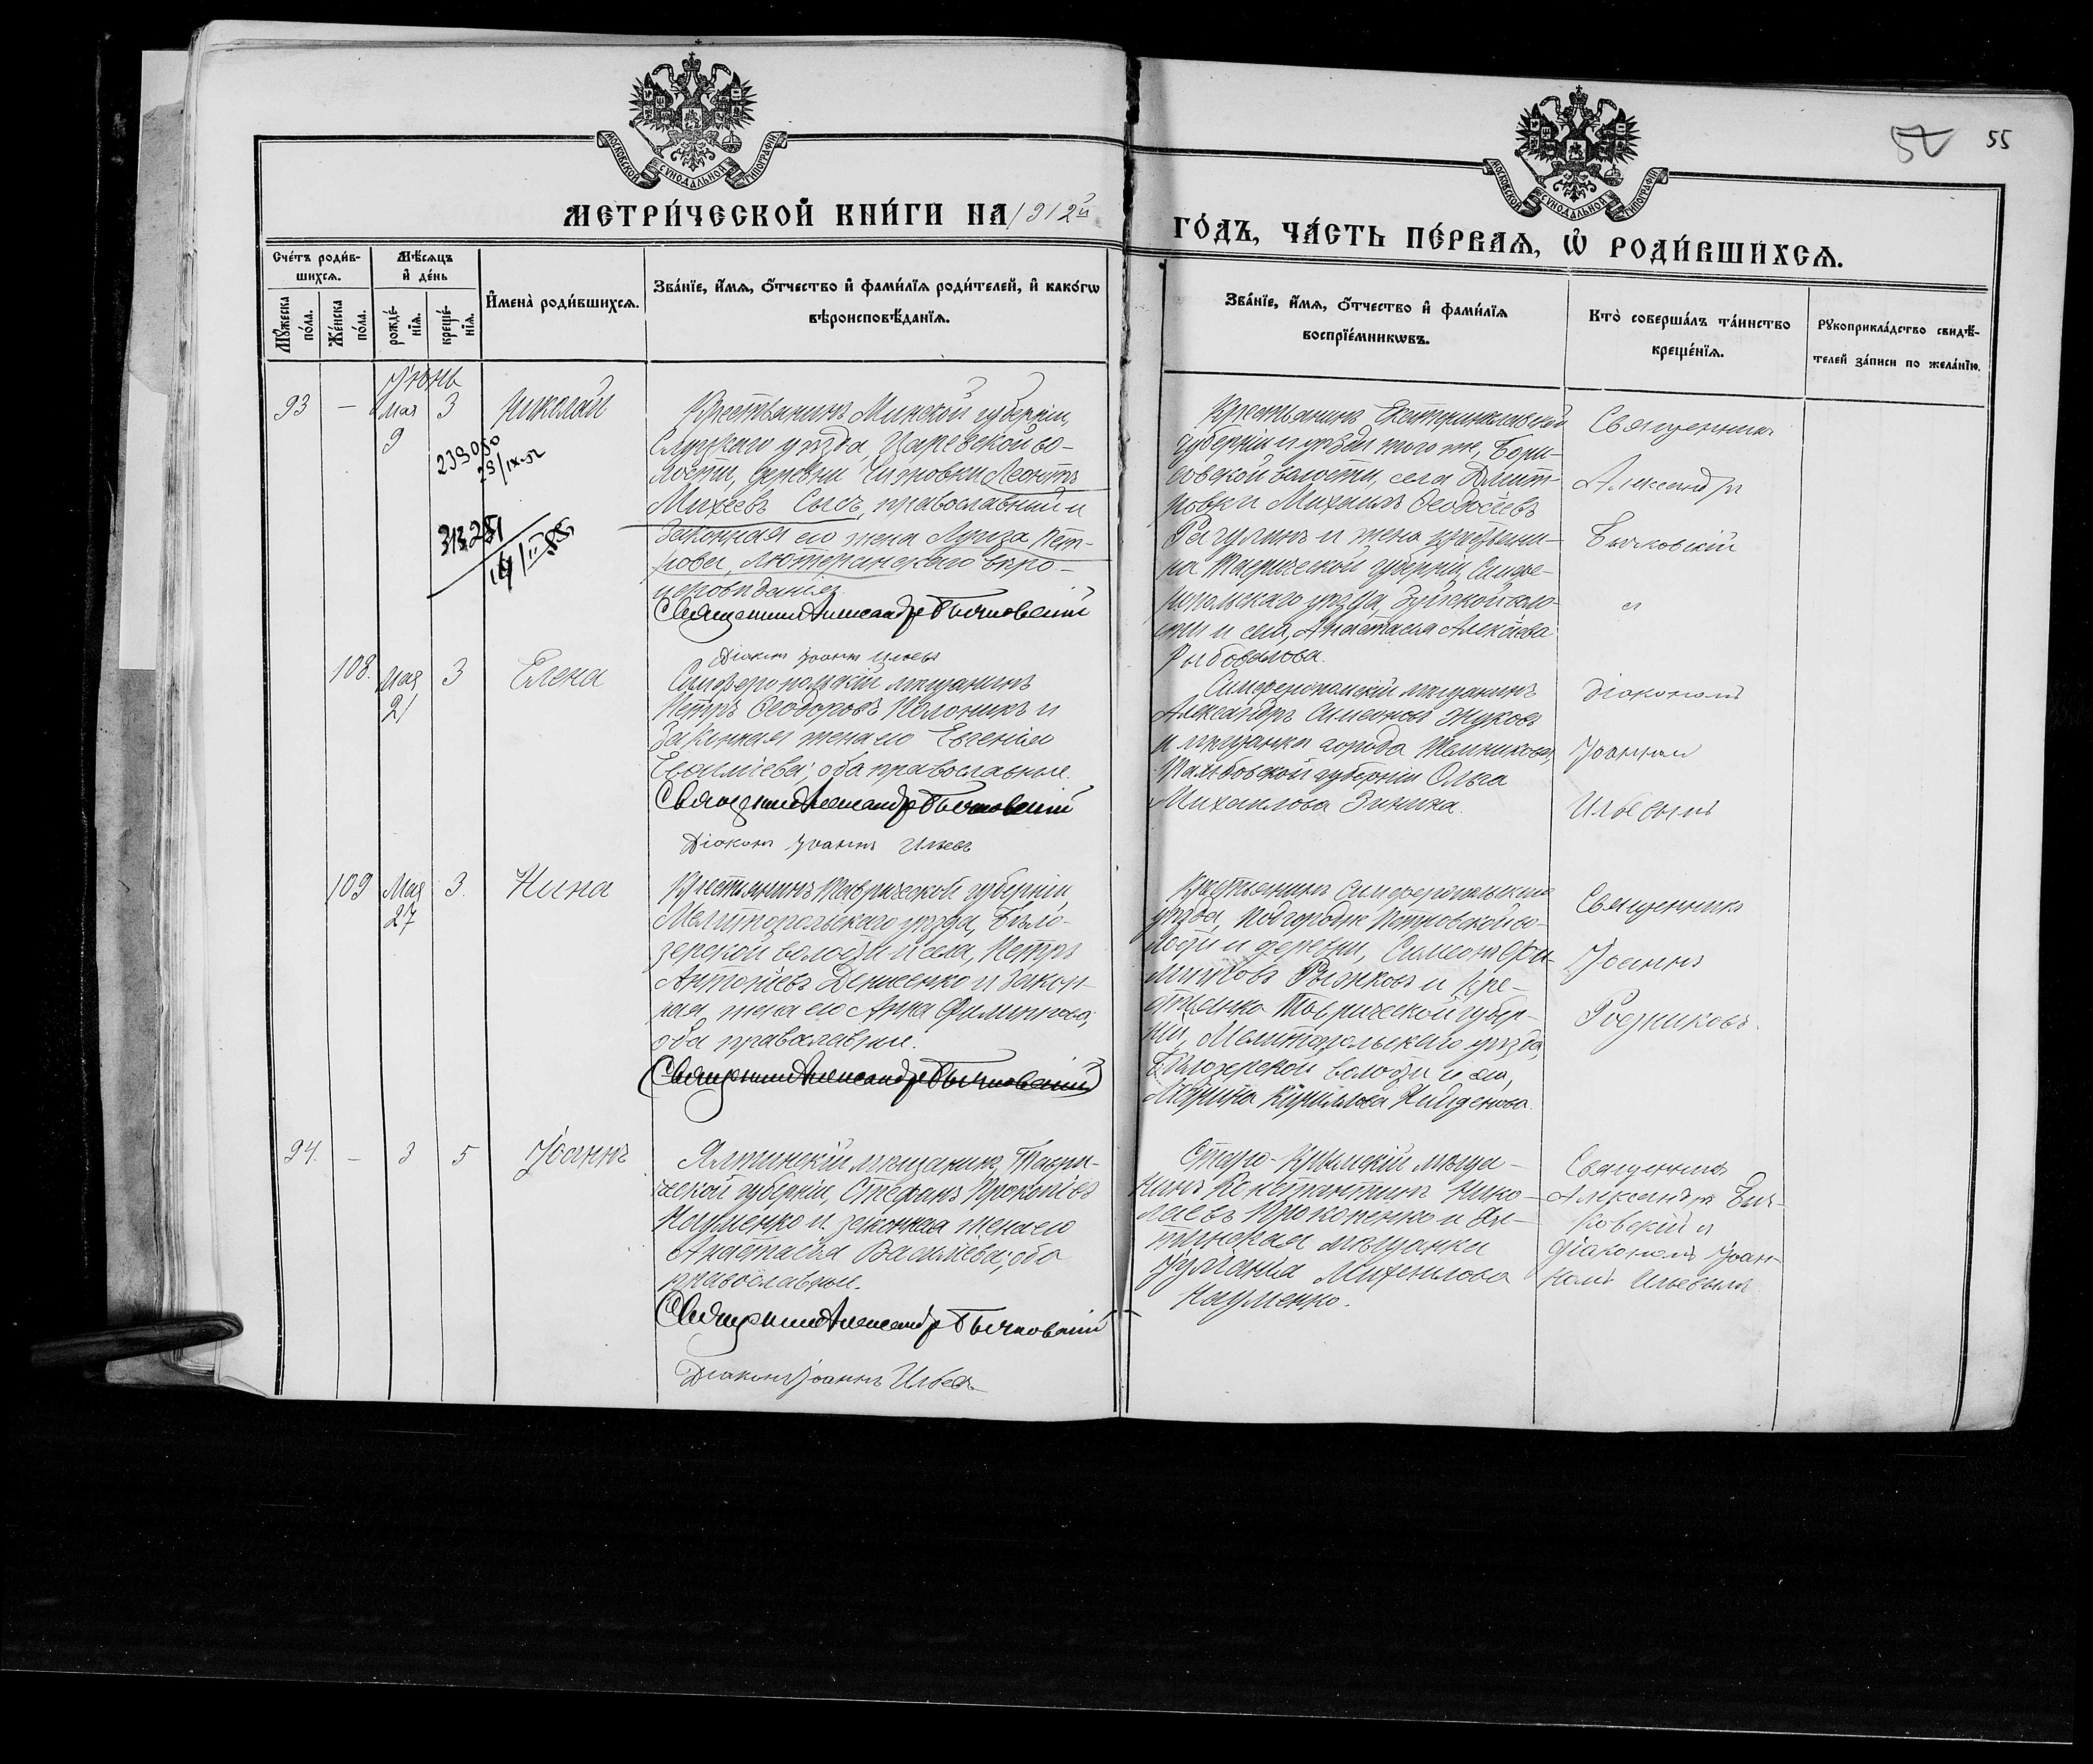 МОСКОВСКОЙ СУНОДАЛЬНОЙ ТИПОГРАФІИ
МОСКОВСКОЙ СУНОДАЛЬНОЙ ТИПОГРАФІИ
55
МЕТРИ́ЧЕСКОЙ КНИ́ГИ НА 1912й
ГО́ДЪ, ЧА́СТЬ ПЕ́РВАѦ, Ѡ҆ РОДИ́ВШИХСѦ.
Сче́тъ роди́в-
шихсѧ.
Мѣ́сѧцъ
и҆ де́нь
Мꙋ́жеска
по́ла.
Же́нска
по́ла.
рожде́-
нїѧ.
креще́-
нїѧ.
И҆мена̀ роди́вшихсѧ.
Зва́нїе, и҆́мѧ, ѻ҆́тчество и҆ фами́лїѧ роди́телей, и҆ како́гѡ
вѣроисповѣ́данїѧ.
Зва́нїе, и҆́мѧ, ѻ҆́тчество и҆ фами́лїѧ
воспрїе́мникѡвъ.
Кто̀ соверша́лъ та́инство
креще́нїѧ.
Рꙋкоприкла́дство свидѣ́-
телей за́писи по жела́нїю.
Іюнь
93
—
Мая
9
3
239050
29/IX-52
313251
14/II 55
Николай
Крестьянинъ Минской губерніи,
Слуцкаго уѣзда, Царевской во-
лости, деревни Леонтій
Михеевъ Сысъ, православный и
законная его жена Луиза Пет-
рова, Лютеранскаго вѣро-
исповѣданія.
Священникъ Александръ Бычковскій
Діаконъ Іоаннъ Ильевъ
Крестьянинъ Екатеринославской
губерніи и уѣзда того же, Бори-
совской волости, села Дмит-
ровки Михаилъ Ѳеодосіевъ
и жена крестьяни-
на Таврической губерніи, Симфе-
ропольскаго уѣзда, Зуйской воло-
сти и села, Анастасія Алексіева
Рыбовалова.
Священникъ
Александръ
Бычковскій
и
108.
Мая
21
3
Елена
Симферопольскій мѣщанинъ
Петръ Ѳеодоровъ Полоникъ и
законная жена его Евгенія
Евѳиміева, оба православные.
Священникъ Александръ Бычковскій
Діаконъ Іоаннъ Ильевъ
Симферопольскій мѣщанинъ
Александръ Симеоновъ Жуковъ
и мѣщанка города Темникова,
Тамбовской губерніи Ольга
Михаилова Зинина.
Діакономъ
Іоанномъ
Ильевымъ
109
Мая
27
3.
Нина
Крестьянинъ Таврической губерніи,
Мелитопольскаго уѣзда, Бѣло-
зерской волости и села, Петръ
Антоніевъ Денисенко и закон-
ная жена его Анна Филиппова;
оба православные.
Священникъ Александръ Бычковскій
Крестьянинъ Симферопольскаго
уѣзда, Подгородне Петровской во-
лости и деревни, Симеонъ Фи-
липповъ Рыжковъ и кре-
стьянка Таврической губер-
ніи, Мелитопольскаго уѣзда,
Бѣлозерской волости и села,
Марина Кириллова Найденова.
Священникъ
Іоаннъ
Резниковъ.
94.
—
3
5
Іоаннъ
Ялтинскій мѣщанинъ, Таври-
ческой губерніи, Стефанъ Прокопіевъ
Науменко и законная жена его
Анастасія Василіева, оба
православные.
Священникъ Александръ Бычковскій
Діаконъ Іоаннъ Ильевъ
Старо-Крымскій мѣща-
нинъ Константинъ Нико-
лаевъ Прокопенко и Ял-
тинская мѣщанка
Іуліанія Михаилова
Науменко.
Священникъ
Александръ Быч-
ковскій и
діакономъ Іоан-
номъ Ильевымъ